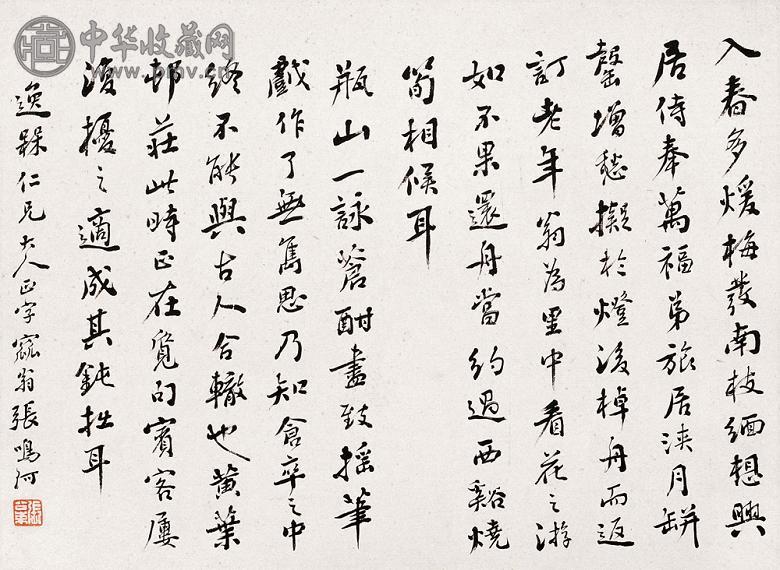 入春多煖梅發南枝緬想興
居侍奉萬福弟旅居浹月缾
罄增愁擬於燈後棹舟而返
訂老年翁為里中看花之游
如不果還舟當約過西谿燒
筍相候耳
瓶山一詠蒼酣畫致搖筆
戲作了無雋思乃知倉卒之中
終不能與古人合轍也黃葉
邨莊此時正在覓句賓客屢
復擾之適成其鈍拙耳
逸槑仁兄大人正字 寱翁張鳴珂
中华收藏网